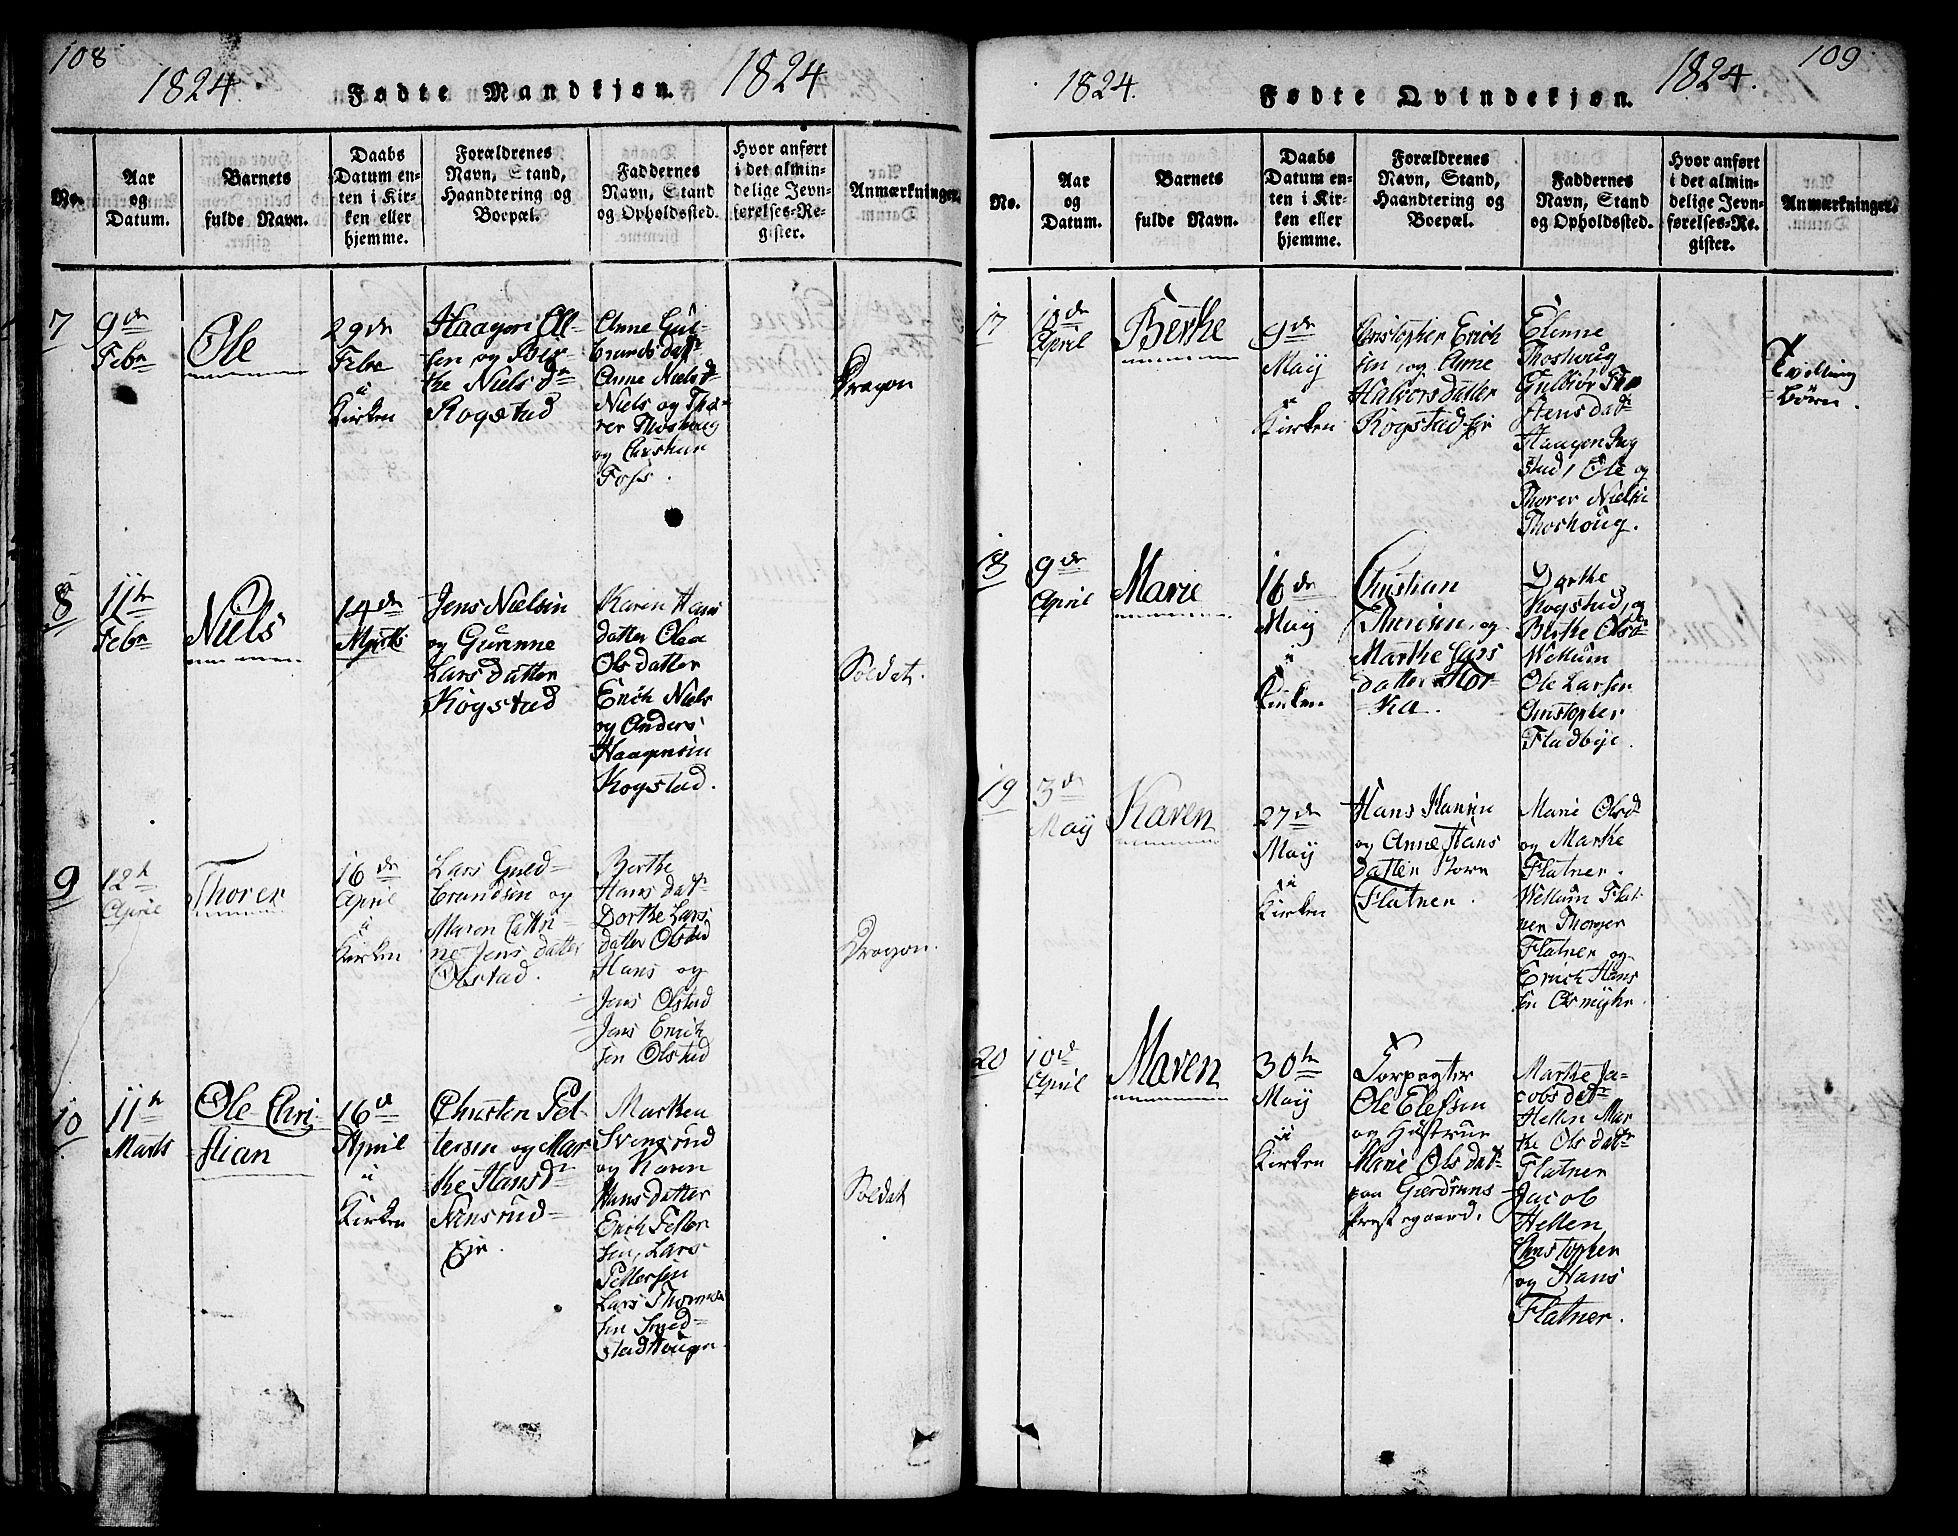 108
1824.
Fødte Mandkjøn.
1824
No.
Aar
og
Datum.
Barnets
fulde Navn.
Daabs
Datum en-
ten i Kir-
ken eller
hjemme.
Forældrenes
Navn, Stand,
Haandtering og
Boepæl.
Faddernes
Navn, Stand
og Opholdssted.
Hvor anført
i det almin-
delige Jevn-
førelses-Re-
gister.
Anmærkninger.
7
9de
Febr
Ole
29de
Febr
i
Kirken
Haagen Ol-
sen og Ber-
the Niels dr
Rogstad
Anne Gul-
brands datr
Anne Nielsd
Niels og Tho-
rer Thoshoug
og Christian
Foss.
Dragon
8
11te
Febr
Niels
14de
Marts
Jens Nielsen
og Gurenne
Lars datter
Rogstad
Karen Hans
datter Olea
Ols datter
Erich Niels
og Anders
Haagensen
Rogstad.
Soldat.
9
12t
April
Thorer
16de
April
i
Kirken
Lars Guld-
brandsen og
Maren Cathri-
ne Jens datter
Olstad.
Berthe
Hans datr
Dorthe Lars
datter Olstad
Hans og
Jens Olstad
Jens Erich
sen Olstad
Dragon.
10
11te
Marts
Ole Chri-
stian
16d
April
i
Kirken
Christen Pet-
tersen og Mar
the Hansd
Svensrud-
Eie.
Marthen
Svensrud
og Karen
Hansdatter
Erich Petter
sen, Lars
Pettersen
Lars Thorer
sen Smed-
stadhougn.
Soldat
109
1824.
Fødte Qvindekjøn.
1824.
No.
Aar
og
Datum.
Barnets
fulde Navn.
Daabs
Datum en-
ten i Kir-
ken eller
hjemme.
Forældrenes
Navn, Stand,
Haandtering og
Boepæl.
Faddernes
Navn, Stand
og Opholdssted.
Hvor anført
i det almin-
delige Jevn-
førelses-Re-
gister.
Anmærkninger.
17
10de
April
Berthe
9de
May
i
Kirken
Christopher Erich
sen, og Anne
Halvors datter
Rogstad Eie
Elenne
Thoshoug
Gulbiør Tho
stens datr
Haagen Rog
stad, Ole og
Thorer Nielsen
Thoshoug.
Tvilling
Børn.
18
9de
April
Marie
16de
May
i
Kirken
Christian
Thoresen, og
Marthe Lars
datter Hor-
ka.
Dorthe
Rogstad, og
Berthe Olsd
Wellum
Ole Larsen
Christopher
Fladbye.
19
3de
May
Karen
27de
May
i
Kirken
Hans Hansen
og Anne Hans
datter Store
Flatner.
Marie Olsd
og Marthe
Flatner.
Wellum Flat
ner Thorger
Flatner og
Erich Hans
sen Olsmyhr.
20
10d
April
Maren
30te
May
i
Kirken
Forpagter
Ole Elefsen
og Hustrue
Marie Ols datr
paa Gierdrums
Prestegaard.
Marthe Ja-
cobs datr
Hellen Mar
the Ols datr
Flatner
Jacob
Hellen
Christopher
og Hans
Flatner.